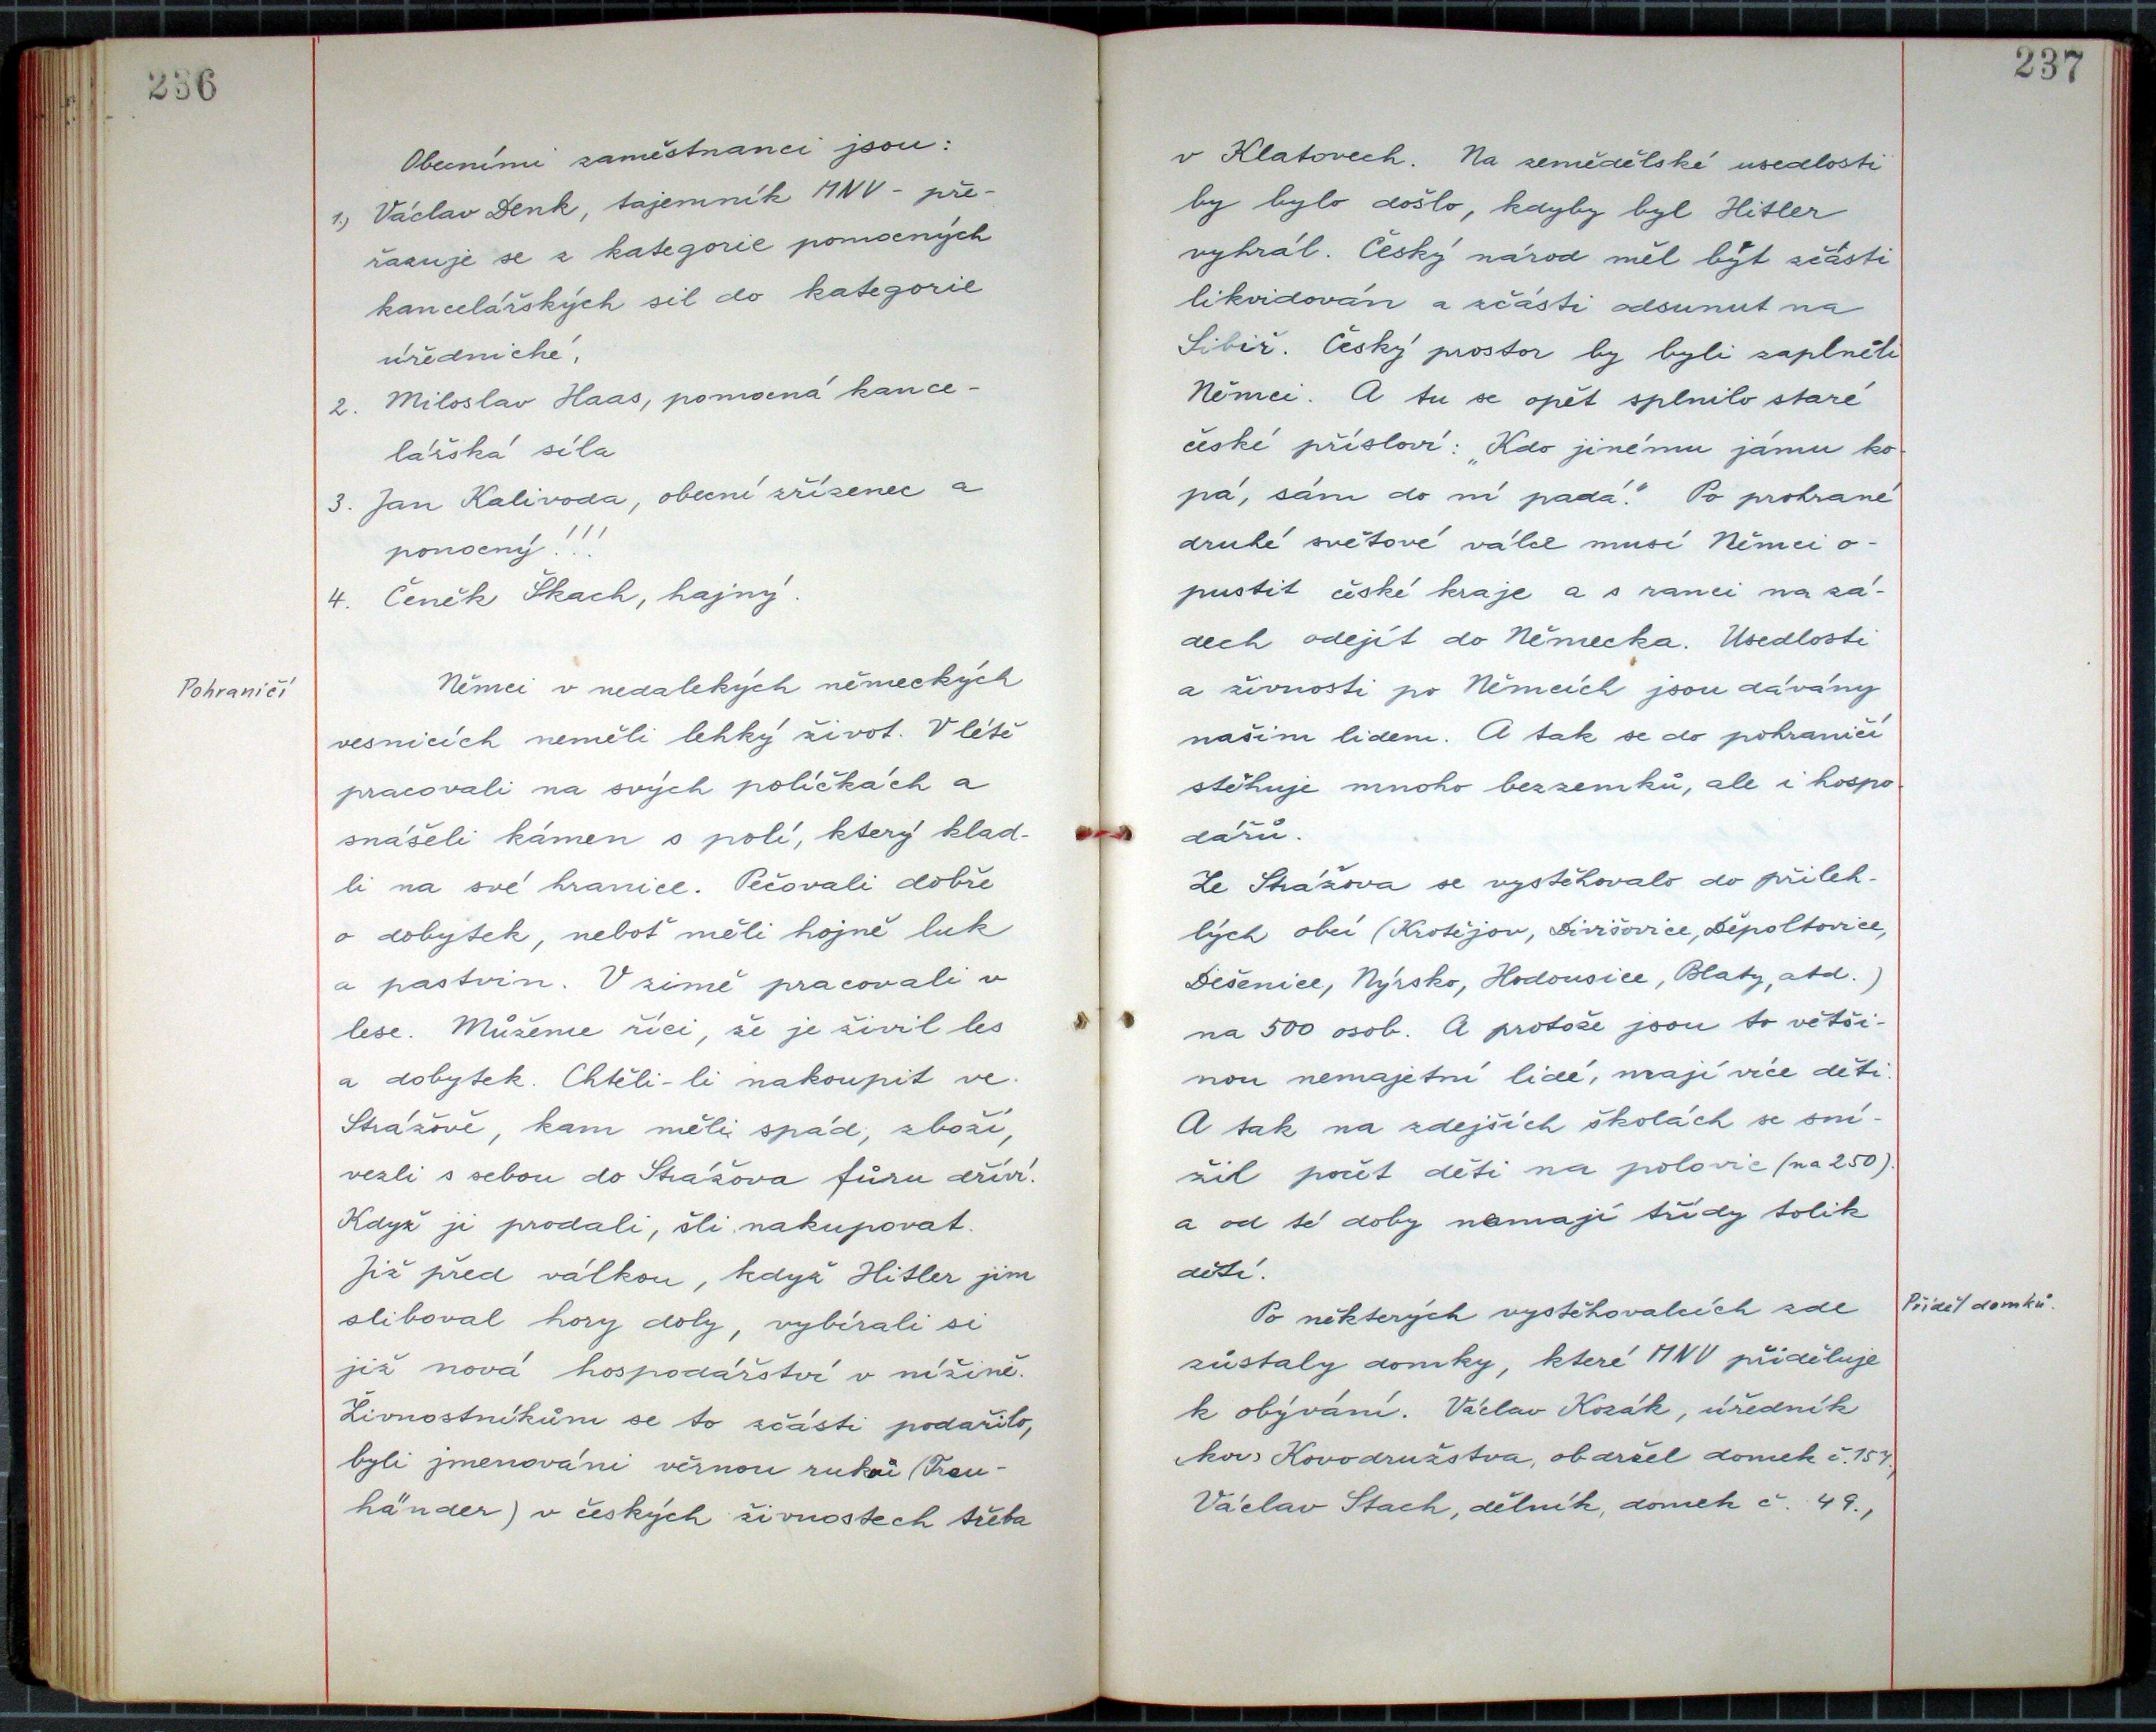 236
Obecními zaměstnanci jsou:
1.) Václav Denk, tajemník MNV - pře-
řazuje se z kategorie pomocných
kancelářských sil do kategorie
úřednické,
2. Miloslav Haas, pomocná kance-
lářská síla
3. Jan Kalivoda, obecní zřízenec a
ponocný!!!
4. Čeněk Škach, hajný.
Pohraničí
Němci v nedalekých německých
vesnicích neměli lehký život. V létě
pracovali na svých políčkách a
snášeli kámen s polí, který klad-
li na své hranice. Pečovali dobře
o dobytek, neboť měli hojně luk
a pastvin. V zimě pracovali v
lese. Můžeme říci, že je živil les
a dobytek. Chtěli-li nakoupit ve
Strážově, kam měli spád, zboží,
vezli s sebou do Strážova fůru dříví.
Když ji prodali, šli nakupovat.
Již před válkou, když Hitler jim
sliboval hory doly, vybírali si
již nová hospodářství v nížině.
Živnostníkům se to zčásti podařilo,
byli jmenováni věrnou rukou (Treu-
händer) v českých živnostech třeba
237
v Klatovech. Na zemědělské usedlosti
by bylo došlo, kdyby byl Hitler
vyhrál. Český národ měl být zčásti
likvidován a zčásti odsunut na
Sibiř. Český prostor by byli zaplnili
Němci. A tu se opět splnilo staré
české přísloví: „Kdo jinému jámu ko-
pá, sám do ní padá." Po prohrané
druhé světové válce musí Němci o-
pustit české kraje a s ranci na zá-
dech odejít do Německa. Usedlosti
a živnosti po Němcích jsou dávány
našim lidem. A tak se do pohraničí
stěhuje mnoho bezzemků, ale i hospo-
dářů.
Ze Strážova se vystěhovalo do přileh-
lých obcí (Krotějov, Divišovice, Děpoltovice,
Dešenice, Nýrsko, Hodousice, Blaty, atd.)
na 500 osob. A protože jsou to větši-
nou nemajetní lidé, mají více dětí.
A tak na zdejších školách se sní-
žil počet dětí na polovic (na 250).
a od té doby nemají třídy tolik
dětí.
Příděl domků.
Po některých vystěhovalcích zde
zůstaly domky, které MNV přiděluje
k obývání. Václav Kozák, úředník
(kov) Kovodružstva, obdržel domek č. 157.,
Václav Stach, dělník, domek č. 49.,